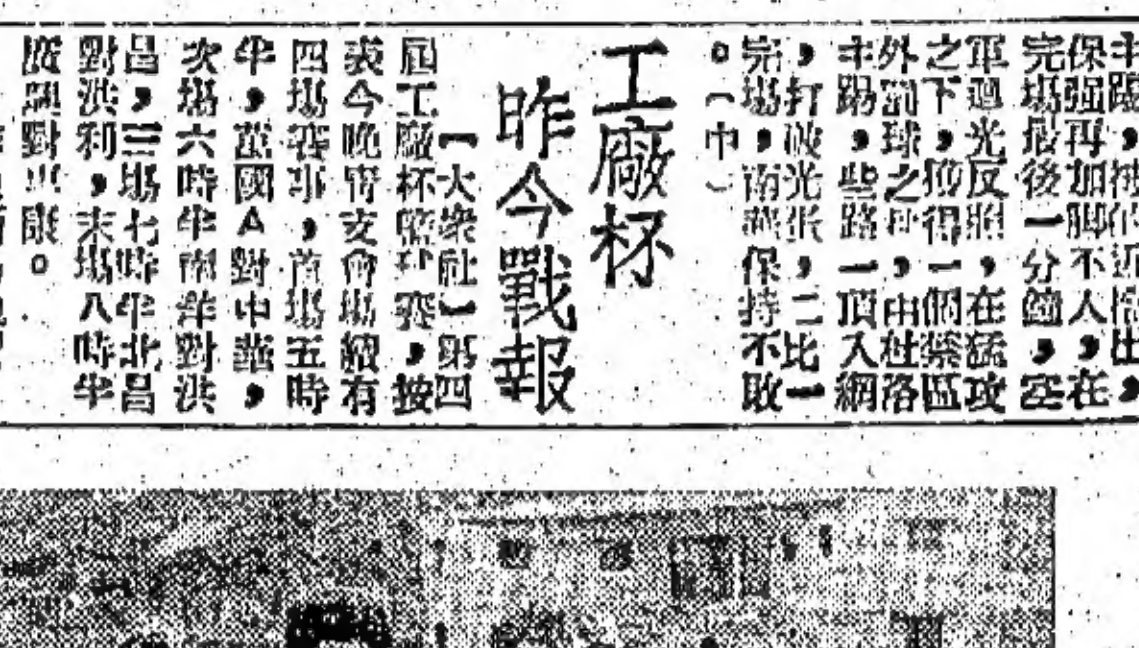 保强再加脚不人，在
完場最後一分鐘，空
軍迴光反照，在猛攻
之下，獲得一個禁區
外罰球之利，由杜洛
主踢，些路一頂入網
，打破光蛋，二比一
完場，南燕保持不敗
。（中）
工廠杯
昨今戰報
【大衆社】第四
屆工廠杯籃球賽，按
表今晚寄支會場續有
四場賽事，首場五時
半，萬國A對中華，
次場六時半南洋對洪
昌，三場七時半北昌
對洪利，末場八時半
對東康。